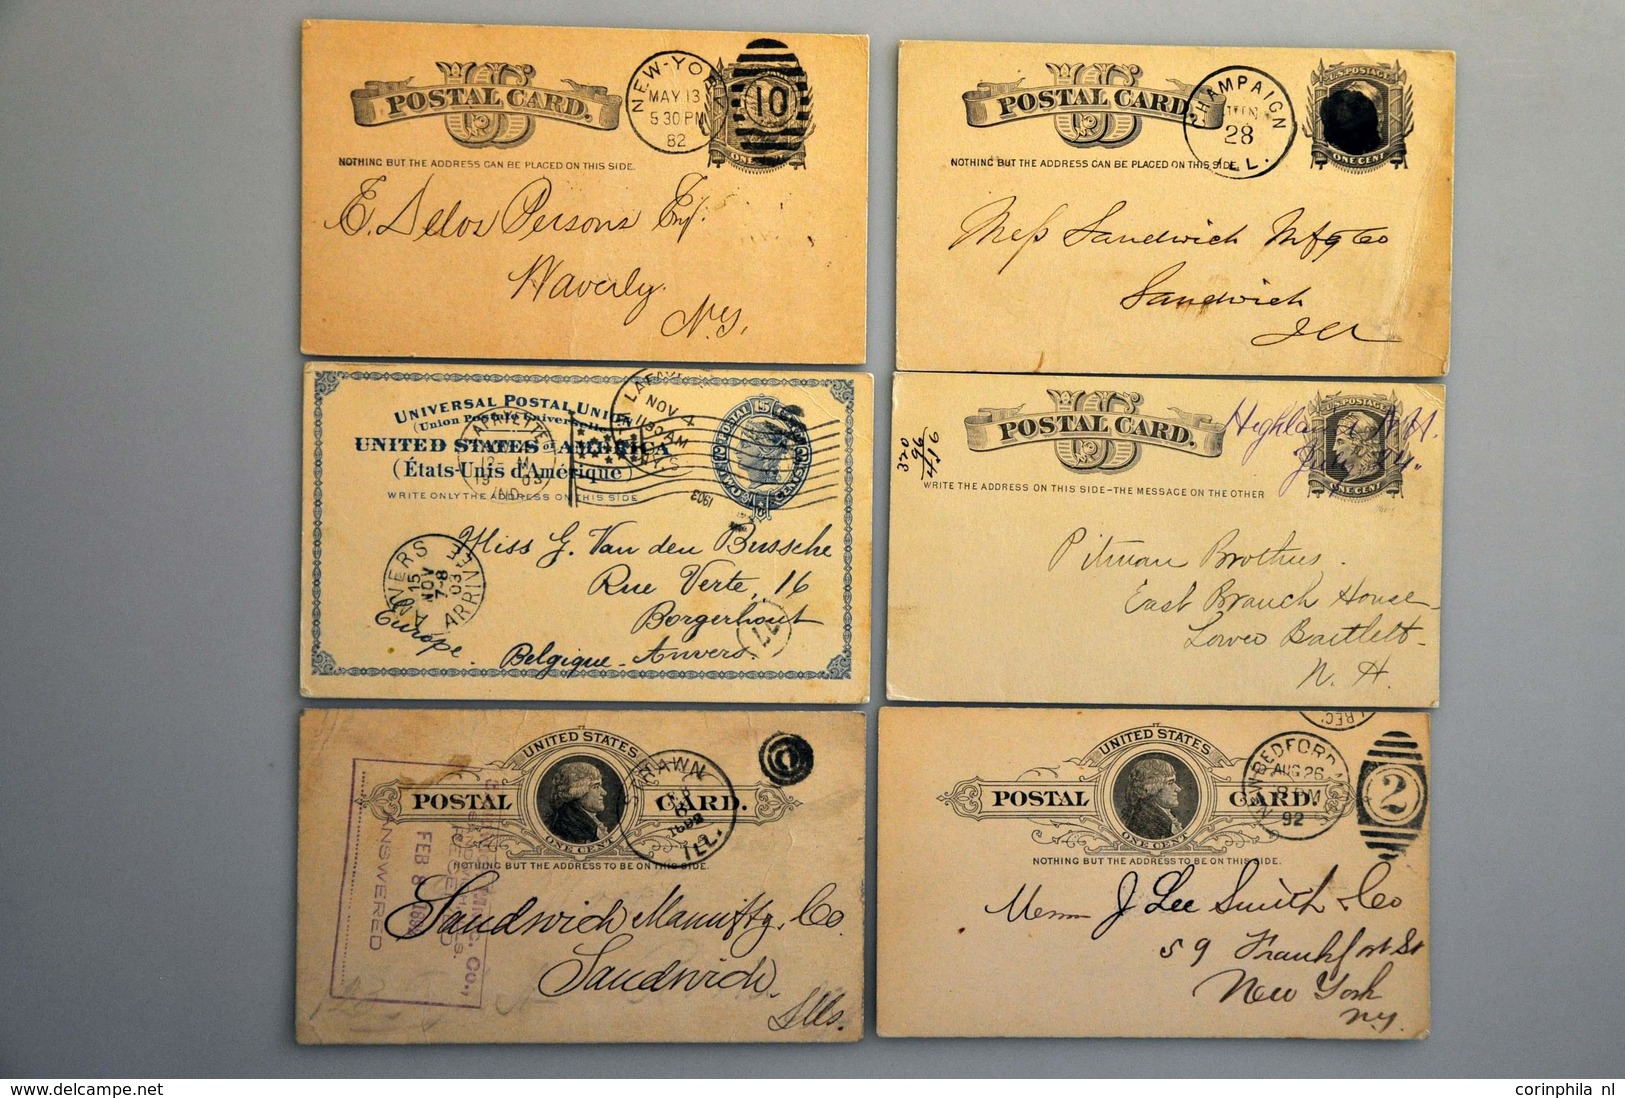 U S
POSTAL CARD.
NOTHING BUT THE ADDRESS CAN BE PLACED ON THIS SIDE.
NEW-YOR
MAY 13
5 30 PM
82
10
ONE CENT
E. Delos Persons Esq.
Waverly.
N.Y.
U S
POSTAL CARD.
NOTHING BUT THE ADDRESS CAN BE PLACED ON THIS SIDE.
CHAMPAIGN
28
ILL.
U.S. POSTAGE
ONE CENT
Mess Sandwich Mfg Co
Sandwich
Ill
UNIVERSAL POSTAL UNION
(Union Postale Universelle)
UNITED STATES of AMERICA
(États-Unis d'Amérique)
WRITE ONLY THE ADDRESS ON THIS SIDE
LAFAYETTE
M
19 03
IND.
NOV 4
11 30 AM
1903
ANVERS
15
NOV
7-8
03
ARRIVÉE
Miss G. Van den Bussche
Rue Verte, 16
Borgerhout
Belgique - Anvers.
Europe.
U S
POSTAL CARD.
WRITE THE ADDRESS ON THIS SIDE - THE MESSAGE ON THE OTHER
320
96
416
U.S. POSTAGE
ONE CENT
Highland N.H.
July
Pitman Brothers.
East Branch House
Lower Bartlett
N. H.
UNITED STATES
POSTAL CARD.
ONE CENT
NOTHING BUT THE ADDRESS TO BE ON THIS SIDE.
STRAWN
1892
ILL.
1
MFG. CO.,
SANDWICH, ILLS.
RECEIVED
FEB 8 1892
ANSWERED
Sandwich Manuftg. Co.
Sandwich.
Ills.
UNITED STATES
POSTAL CARD.
ONE CENT
NOTHING BUT THE ADDRESS TO BE ON THIS SIDE.
NEW BEDFORD
AUG 26
8 PM
92
2
REC'
Messrs J Lee Smith & Co
59 Frankfort St
New York
N.Y.
corinphila nl